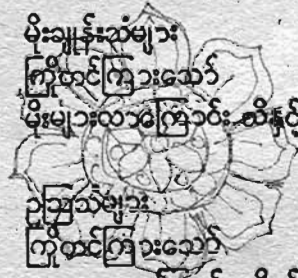 မိုးချုန်းသံများ
ကြိုတင်ကြားသော်
မိုးများလာကြောင်း သိနှင့်
ဥဩသံများ
ကြိုတင်ကြားသော်